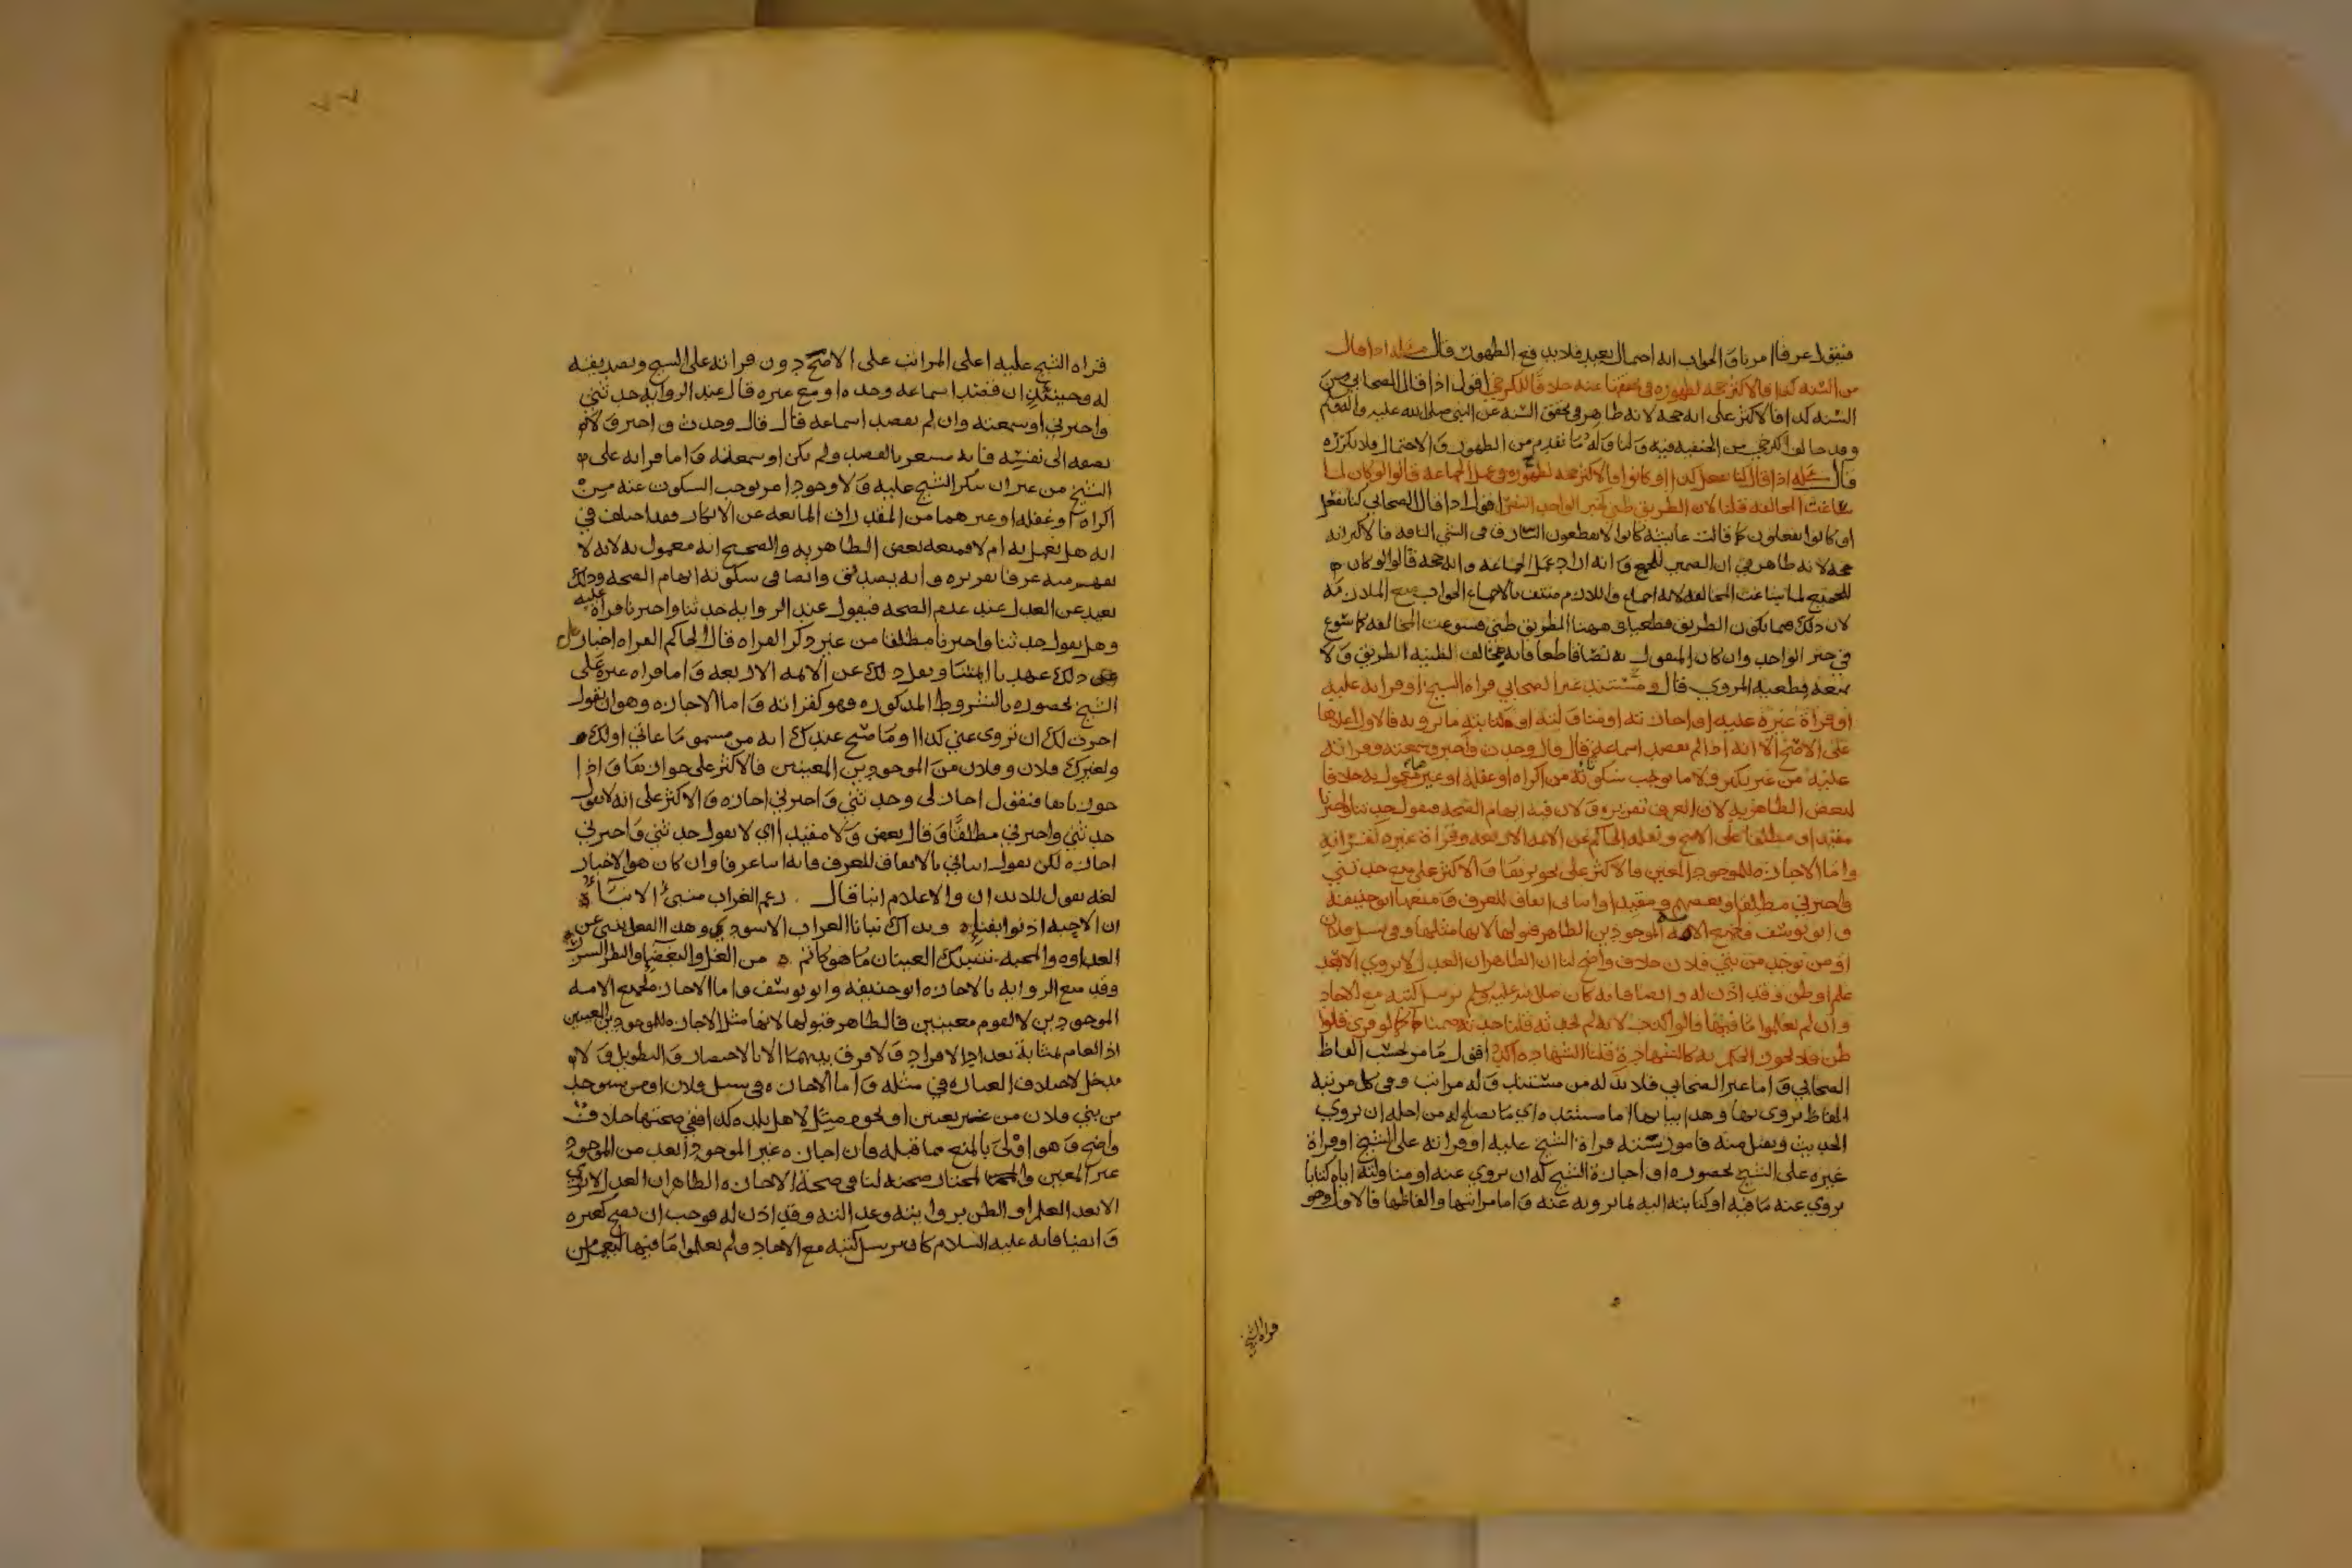 فيقول عرفا امرنا والجواب انه احتمال بعيد فلا يدفع الظهور قال مسئلة اذا قال
من السنة كذا فالاكثر حجة لظهوره في تحققها عنه خلافا للكرخي اقول اذا قال الصحابي من
السنة كذا فالاكثر على انه حجة لانه ظاهر في تحقق السنة عن النبي صلى الله عليه وسلم
وقد خالف الكرخي من الحنفية فيه ولنا وله ما تقدم من الظهور والاحتمال فلا نكرره
قال مسئلة اذا قال كنا نفعل كذا او كانوا فالاكثر حجة لظهوره في عمل الجماعة قالوا لو كان لما
ساغت المخالفة قلنا لان الطريق ظني كخبر الواحد النص اقول اذا قال الصحابي كنا نفعل
او كانوا يفعلون كما قالت عائشة كانوا لا يقطعون السارق في الشي التافه فالاكثر انه
حجة لانه ظاهر في ان الضمير للجميع وانه اراد عمل الجماعة وانه حجة قالوا لو كان
للجميع لما ساغت المخالفة لانه اجماع واللازم منتف بالاجماع الجواب منع الملازمة
لان ذلك فيما يكون الطريق قطعيا وههنا الطريق ظني فسوغت المخالفة كما تسوغ
في خبر الواحد وان كان المنقول به نصا قاطعا فانه يخالف لظنية الطريق ولا
يمنعه قطعية المروي قال ومستند غير الصحابي قراة الشيخ او قراته عليه
او قراة غيره عليه او اجازته او مناولته او كتابته ما يرويه فالاول اعلاها
على الاصح الا انه اذا لم يقصد اسماعه قال قال وحدث واخبر وسمعته وقراته
عليه من غير نكير ولا ما يوجب سكوته من اكراه او غفلة او غيرهما معمول به خلافا
لبعض الظاهرية لان العرف تقريره ولان فيه ايهام الصحة فيقول حدثنا واخبرنا
مقيدا ومطلقا على الاصح ونقله الحاكم عن الائمة الاربعة وقراة غيره كقراته
واما الاجازة للموجود المعين فالاكثر على تجويزها والاكثر على منع حدثني
واخبرني مطلقا وبعضهم ومقيدا وانباني اتفاق للعرف ومنعها ابو حنيفة
وابو يوسف ولجميع الامة الموجودين الظاهر قبولها لانها مثلها وفي نسل فلان
او من يوجد من بني فلان خلاف واضح لنا ان الظاهر ان العدل لا يروي الا بعد
علم او ظن وقد اذن له وايضا فانه كان صلى الله عليه وسلم يرسل كتبه مع الاحاد
وان لم يعلموا ما فيها قالوا كذب لانه لم يحدثه قلنا حدثه ضمنا كما لو قرئ قالوا
ظن فلا يجوز الحكم به كالشهادة قلنا الشهادة اكد اقول ما مر بحسب الفاظ
الصحابي واما غير الصحابي فلا بد له من مستند وله مراتب وفي كل مرتبة
الفاظ يروي بها وهذا بيانها اما مستنده اي ما يصلح له من اجله ان يروي
الحديث ويقبل منه فامور ستة قراة الشيخ عليه او قراته على الشيخ او قراة
غيره على الشيخ بحضوره او اجازة الشيخ له ان يروي عنه او مناولته اياه كتابا
يروي عنه ما فيه او كتابته اليه بما يرويه عنه واما مراتبها والفاظها فالاول وهو
قراة الشيخ
٧٧
قراة الشيخ عليه اعلى المراتب على الاصح دون قراته على الشيخ وتصديقه
له وحينئذ ان قصد اسماعه وحده او مع غيره قال عند الرواية حدثني
واخبرني او سمعته وان لم يقصد اسماعه قال قال وحدث واخبر ولا
يضفه الى نفسه فانه مشعر بالقصد ولم يكن او سمعته واما قراته على
الشيخ من غير ان ينكر الشيخ عليه ولا وجود امر يوجب السكوت عنه من
اكراه او غفلة او غيرهما من المقدرات المانعة عن الانكار فقد اختلف في
انه هل يعمل به ام لا فمنعه بعض الظاهرية والصحيح انه معمول به لانه لا
يفهم منه عرفا تقريره وانه يصدق وايضا في سكوته ايهام الصحة وذلك
بعيد عن العدل عند عدم الصحة فيقول عند الرواية حدثنا واخبرنا قراة عليه
وهل يقول حدثنا واخبرنا مطلقا من غير ذكر القراة قال الحاكم القراة اخبار
على ذلك عهدنا ائمتنا ونقل ذلك عن الائمة الاربعة واما قراة غيره على
الشيخ بحضوره بالشروط المذكورة فهو كقراته واما الاجازة وهو ان يقول
اجزت لك ان تروي عني كذا او ما صح عندك انه من مسموعاتي او لك
ولغيرك فلان وفلان من الموجودين المعينين فالاكثر على جوازها واذا
جوزناها فنقول اجاز لي وحدثني واخبرني اجازة والاكثر على انه لا يقول
حدثني واخبرني مطلقا وقال بعض ولا مقيدا اي لا يقول حدثني واخبرني
اجازة لكن يقول انباني بالاتفاق للعرف فانه انبا عرفا وان كان هو الاخبار
لغة يقول للايذان والاعلام انبا قال زعم الغراب منبئ الانباء
ان الاحبة اذنوا بفراق وبذاك نبانا الغراب الاسود وهذا الفعل ينبئ عن
العداوة والمحبة تنبيك العينان ما هو كاتم من الغل والبغضا والنظر الشزر
وقد منع الرواية بالاجازة ابو حنيفة وابو يوسف واما الاجازة لجميع الامة
الموجودين لا لقوم معينين فالظاهر قبولها لانها مثل الاجازة للموجودين المعينين
اذ العام بمثابة تعداد الافراد ولا فرق بينهما الا بالاختصار والتطويل ولا
مدخل لاختلاف العبارة في مثله واما الاجازة في نسل فلان او من سيوجد
من بني فلان من غير تعيين او نحوه مثل لاهل بلدة كذا ففي صحتها خلاف
واضح وهو اولى بالمنع مما قبله فان اجازة غير الموجود ابعد من الموجود
غير المعين والمختار صحته لنا في صحة الاجازة الظاهر ان العدل لا يروي
الا بعد العلم او الظن بروايته وعدالته وقد اذن له فوجب ان يصح كغيره
وايضا فانه عليه السلام كان يرسل كتبه مع الاحاد ولم يعلموا ما فيها ليعمل من